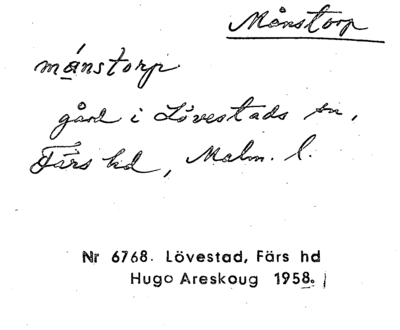 Månstorp
mánstorp.
gård i Lövestads sn,
Färs hd, Malm. l.
Nr 6768. Lövestad, Färs hd
Hugo Areskoug 1958.